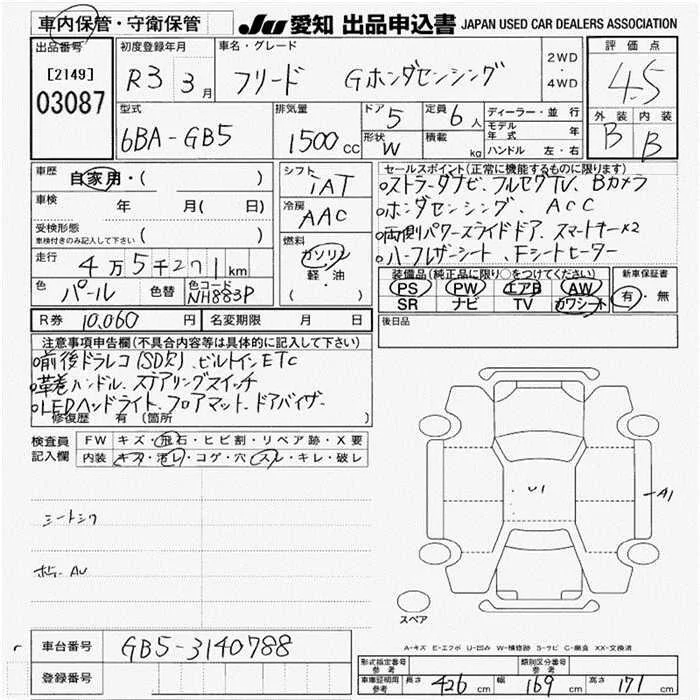 車内保管・守衛保管 JU 愛知 出品申込書 JAPAN USED CAR DEALERS ASSOCIATION
出品番号 初度登録年月 車名・グレード 評価点
[2149] R3 3月 フリード Gホンダセンシング 2WD・4WD 4.5
03087
型式 排気量 ドア 5 定員 6人 ディーラー・並行 外装 内装
6BA-GB5 1500cc 形状 W 積載 kg モデル年式 年 B B
ハンドル 左・右
車歴 自家用・( ) シフト iAT セールスポイント(正常に機能するものに限ります)
車検 年 月( 日) 冷房 AAC ・ストラーダナビ、フルセグTV、Bカメラ
・ホンダセンシング、ACC
受検形態 ( )
車検付きのみ記入して下さい
燃料 ガソリン ・両側パワースライドドア、スマートキー×2
走行 4万5千271km 軽・油 ・ハーフレザーシート、Fシートヒーター
( )
色 パール 色替 色コード NH883P 装備品(純正品に限り○をつけてください) 新車保証書
PS PW エアB AW 有・無
SR ナビ TV カワシート
R券 10,060円 名変期限 月 日 後日品
注意事項申告欄(不具合内容等は具体的に記入して下さい)
・前後ドラレコ(SD欠)、ビルトインETC
・革巻ハンドル、ステアリングスイッチ
・LEDヘッドライト、フロアマット、ドアバイザー
修復歴 有(箇所 )
検査員記入欄 FW キズ・飛石・ヒビ割・リペア跡・X要
内装 キズ・汚レ・コゲ・穴・スレ・キレ・破レ
U1 A1
シートシワ
ボディー AU
スペア
車台番号 GB5-3140788 A-キズ E-エクボ U-凹み W-補修跡 S-サビ C-腐食 XX-交換済
登録番号 形式指定番号 参考 類別区分番号 参考
車庫証明用 参考 長さ 426cm 幅 169cm 高さ 171cm